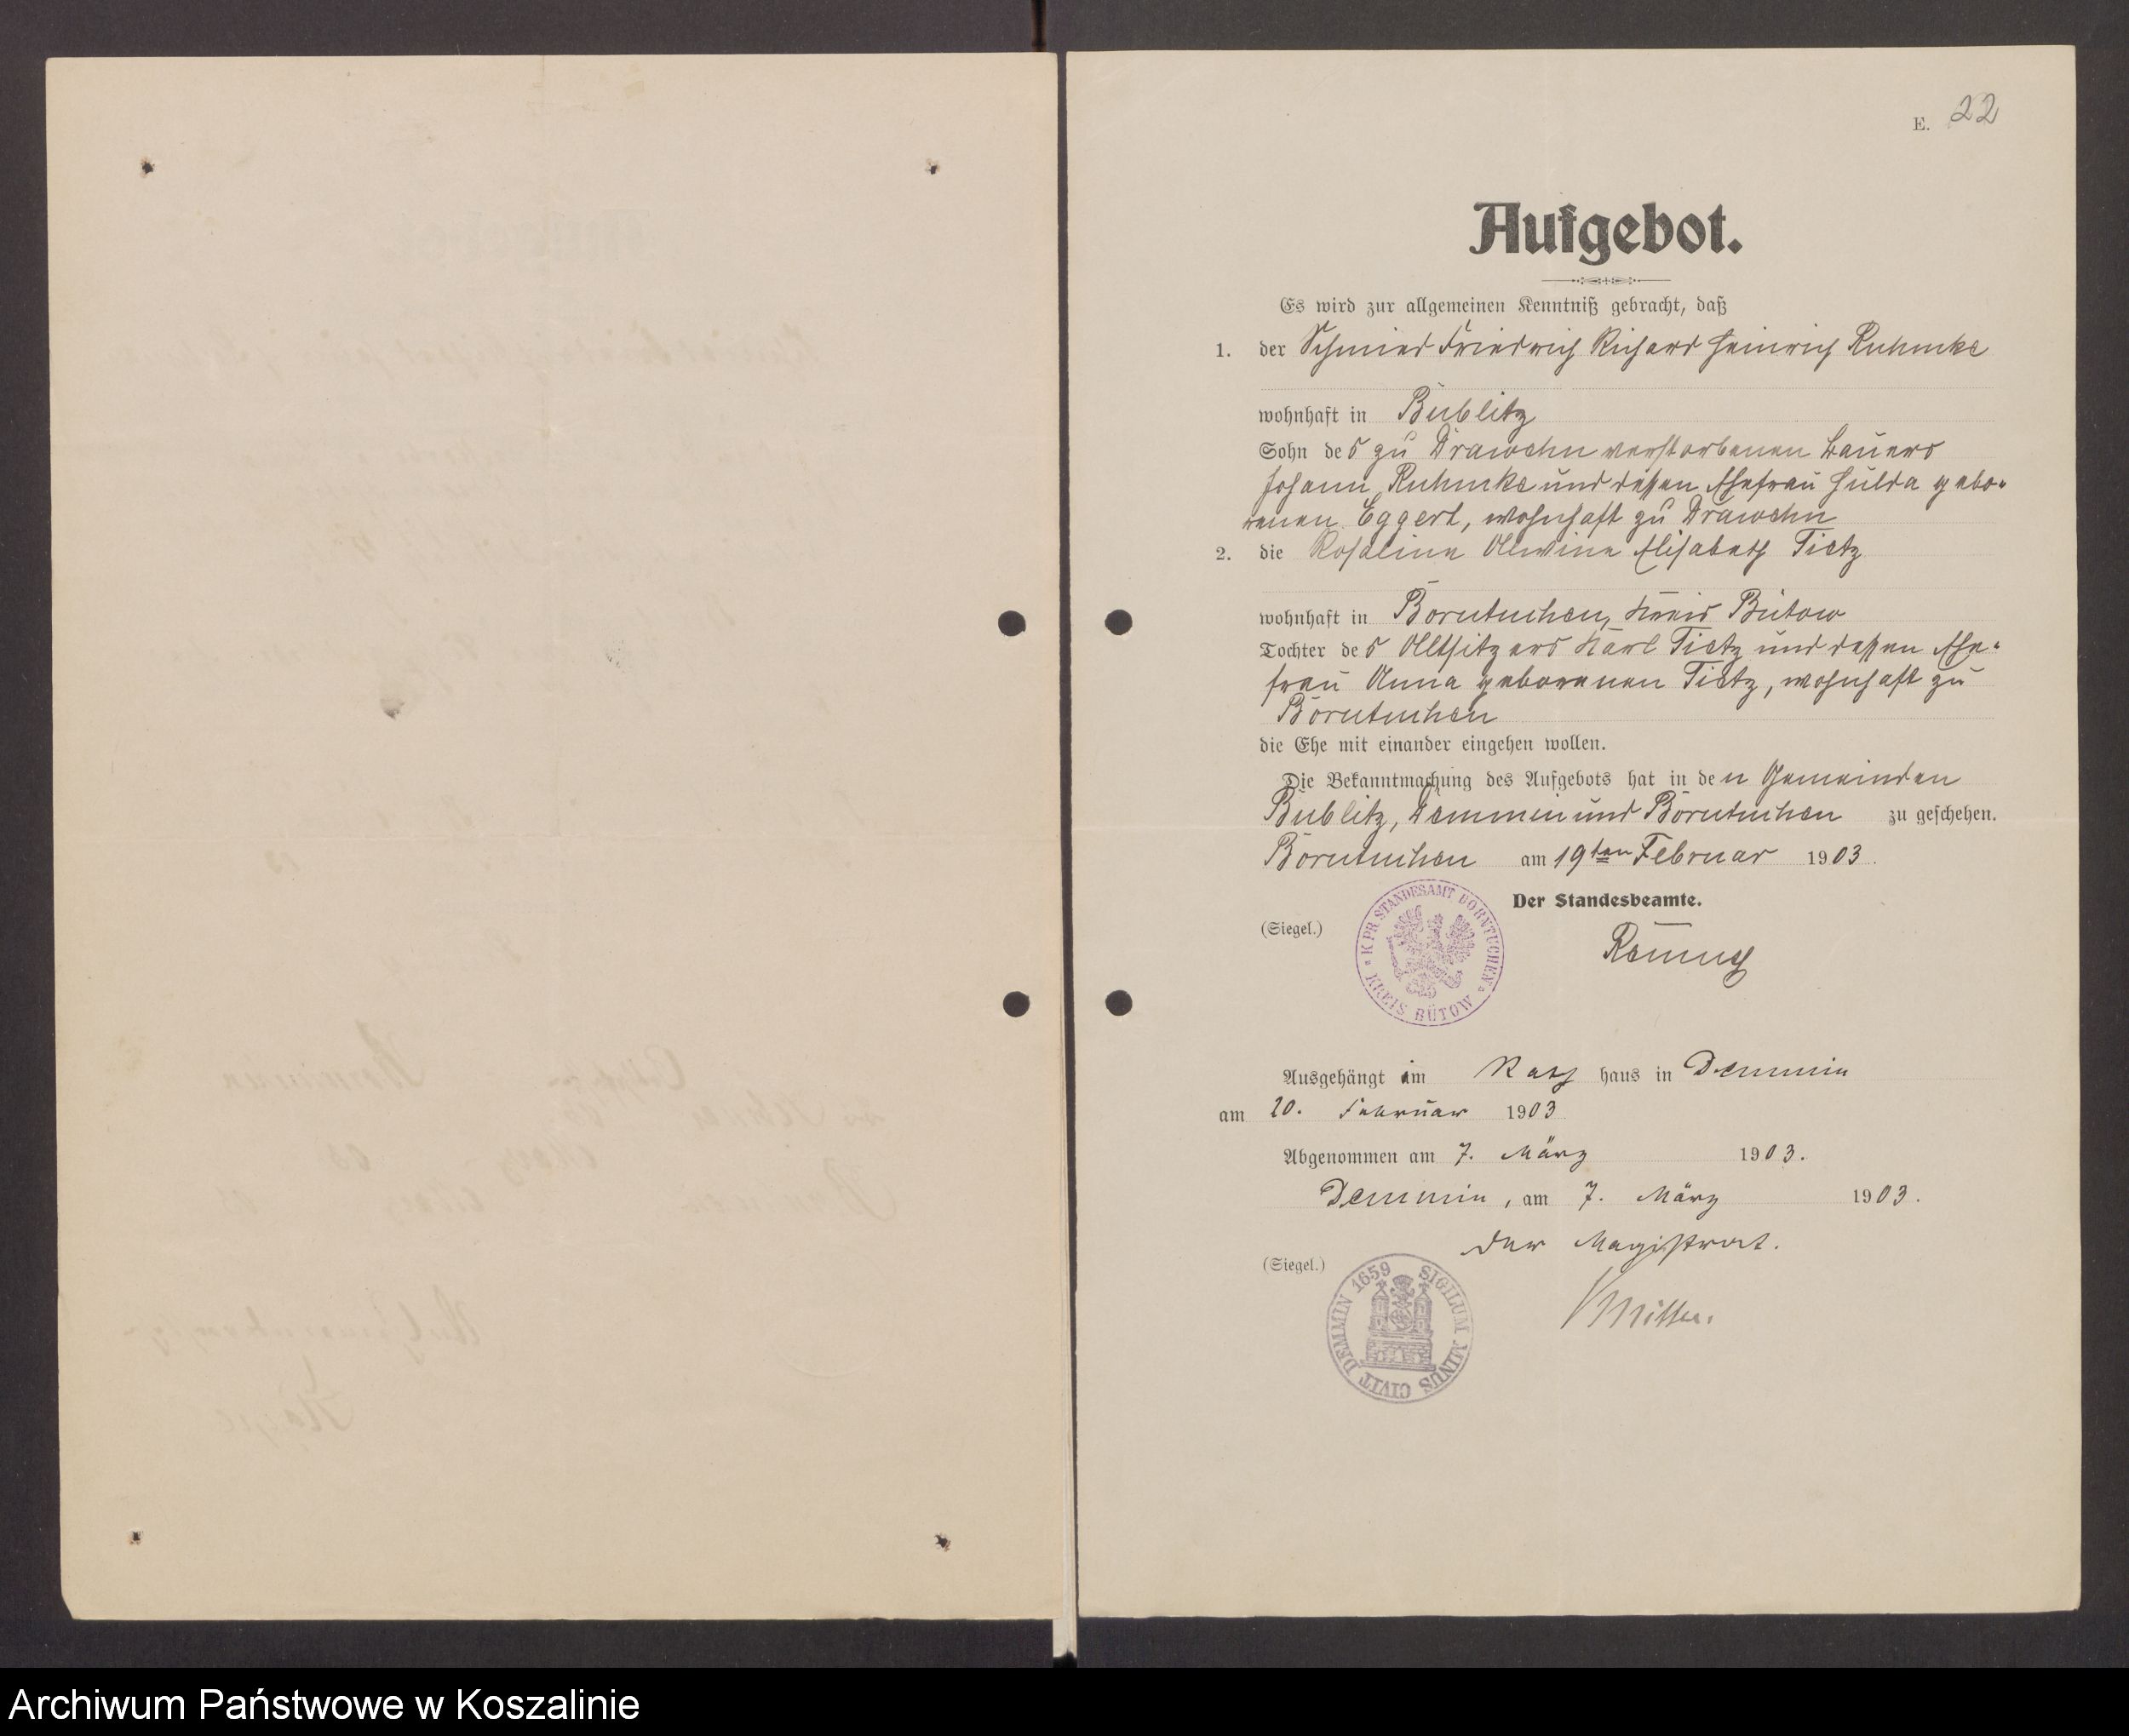 E. 22
Aufgebot.
Es wird zur allgemeinen Kenntniß gebracht, daß
1. der Schmied Friedrich Richard Heinrich Ruhnke
wohnhaft in Bublitz
Sohn des zu Drawehn verstorbenen Bauers
Johann Ruhnke und dessen Ehefrau Hulda gebo-
renen Eggert, wohnhaft zu Drawehn
2. die Rosaline Alwine Elisabeth Tietz
wohnhaft in Borntuchen, Kreis Bütow
Tochter des Altsitzers Karl Tietz und dessen Ehe-
frau Anna geborenen Tietz, wohnhaft zu
Borntuchen
die Ehe mit einander eingehen wollen.
Die Bekanntmachung des Aufgebots hat in den Gemeinden
Bublitz, Demmin und Borntuchen zu geschehen.
Borntuchen am 19ten Februar 1903.
Der Standesbeamte.
(Siegel.)
K. PR. STANDESAMT BORNTUCHEN
KREIS BÜTOW
Ausgehängt im Rathhaus in Demmin
am 20. Februar 1903
Abgenommen am 7. März 1903.
Demmin, am 7. März 1903.
Der Magistrat.
(Siegel.)
SIGILUM MINUS CIVIT DEMMIN 1659
Archiwum Państwowe w Koszalinie